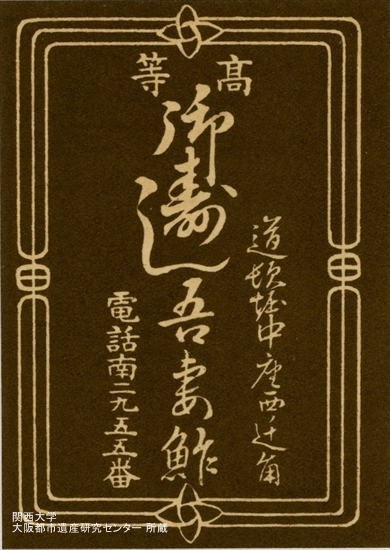 高等
御壽し
吾妻鮓
道頓堀中座西辻角
電話南二九五五番
関西大学
大阪都市遺産研究センター 所蔵